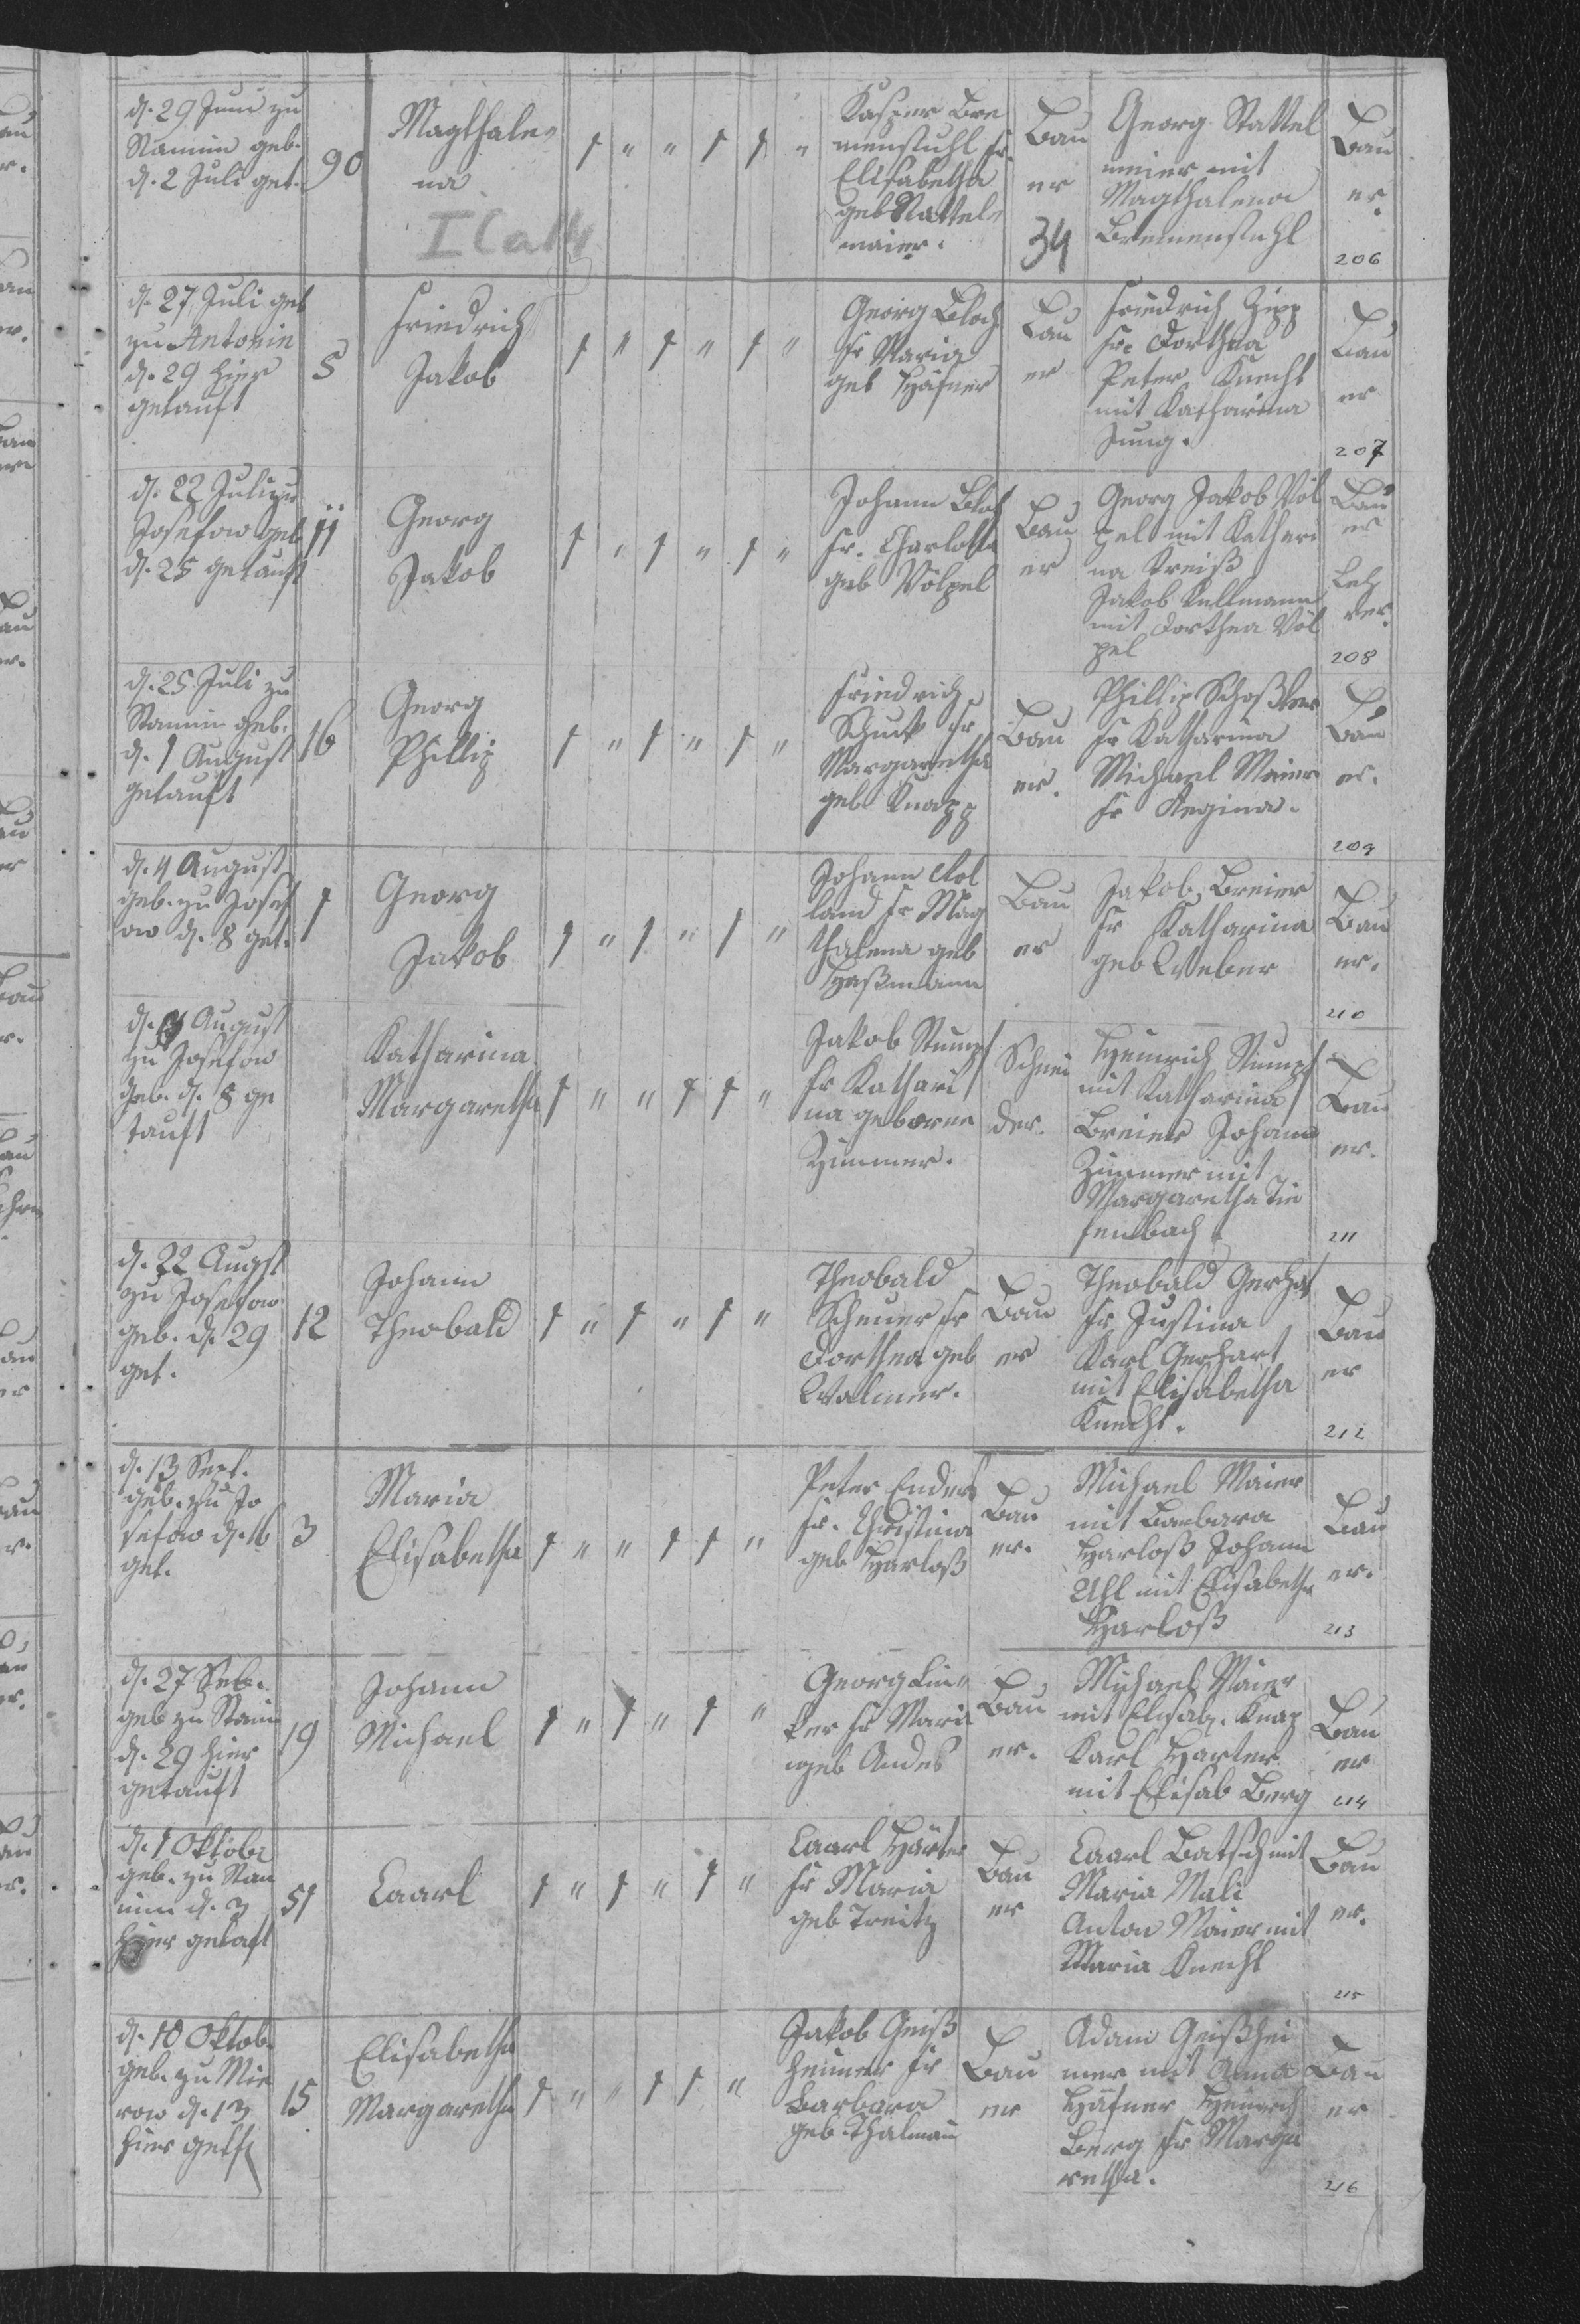 d. 29 Juni zu
Stanin geb.
d. 2 Juli get.
90
Magthale=
na
1 " " 1 1 "
Kasper Bre
menstuhl fr.
Elisabetha
geb Stattel=
maier.
Bau
er
34
Georg Stattel
meier mit
Magthalena
Bremenstuhl
Bau
er.
206
d. 27 Juli geb
zu Antonin
d. 29 hier
getauft
5
Friedrich
Jakob
1 " 1 " 1 "
Georg Bloch
fr Maria
geb Häfner
Bau
er
Friedrich Zipp
fr. Dorthea
Peter Knecht
mit Katharina
Jung.
Bau
er
207
d. 22 Juli zu
Josefow geb
d. 25 getauft
11
Georg
Jakob
1 " 1 " 1 "
Johann Bloch
fr. Charlotta
geb Völpel
Bau
er
Georg Jakob Völ
pel mit Kathari
na Treiß
Jakob Kullmann
mit Dorthea Völ
pel
Bau
er
Leh
rer.
208
d. 25 Juli zu
Stanin geb.
d. 1 August
getauft
16
Georg
Phillip
1 " 1 " 1 "
Friedrich
Schuck fr
Margaretha
geb Knapp
Bau
er.
Phillip
fr Katharina
Michael Maier
fr Regina.
Bau
er.
209
d. 4 August
geb. zu Josef
ow d. 8 get.
1
Georg
Jakob
1 " 1 " 1 "
Johann Rol
land fr Mag
thalena geb
Haßmann
Bau
er
Jakob Breier
fr Katharina
geb Weber
Bau
er.
210
d. August
zu Josefow
geb. d. 8 ge
tauft
Katharina
Margaretha
1 " " 1 1 "
Jakob Stumpf
fr Kathari
na geborne
Zimmer.
Schnei
der.
Heinrich Stumpf
mit Katharina
Breier Johann
Zimmer mit
Margaretha Tie
fenbach
Bau
er.
211
d. 22 Augst
zu Josefow
geb. d. 29
get.
12
Johann
Theobald
1 " 1 " 1 "
Theobald
Scheuer fr
Dorthea geb
Walmer.
Bau
er
Theobald Gerhat
fr Justina
Karl Gerhart
mit Elisabetha
Knecht.
Bau
er
212
d. 13 Sept.
geb. zu Jo
sefow d. 16
get.
3
Maria
Elisabetha
1 " " 1 1 "
Peter Enders
fr. Christina
geb Harloß
Bau
er.
Michael Maier
mit Barbara
Harloß Johann
Uhl mit Elisabetha
Harloß
Bau
er.
213
d. 27 Seb.
geb zu Stani
d. 29 hier
getauft
19
Johann
Michael
1 " 1 " 1 "
Georg Lin=
ker fr Mari
geb Andes
Bau
er.
Michael Maier
mit Elisab. Knap
Karl Harter
mit Elisab Berg
Bau
er
214
d. 1 Oktober
geb. zu Stan
nin d. 3
hier getaft
51
Caarl
1 " 1 " 1 "
Caarl Härter
fr Maria
geb Treitz
Bau
er
Caarl Batsch mit
Maria Mali
Anton Maier mit
Maria Knecht
Bau
er.
215
d. 10 Oktob.
geb. zu Mie
row d. 13
hier getf
15
Elisabetha
Margaretha
1 " " 1 1 "
Jakob Geiß
heimer fr
Barbara
geb Thalman
Bau
er
Adam Geißhei
mer mit Anna
Häfner Heinrich
Berg fr Marga
retha.
Bau
er
216